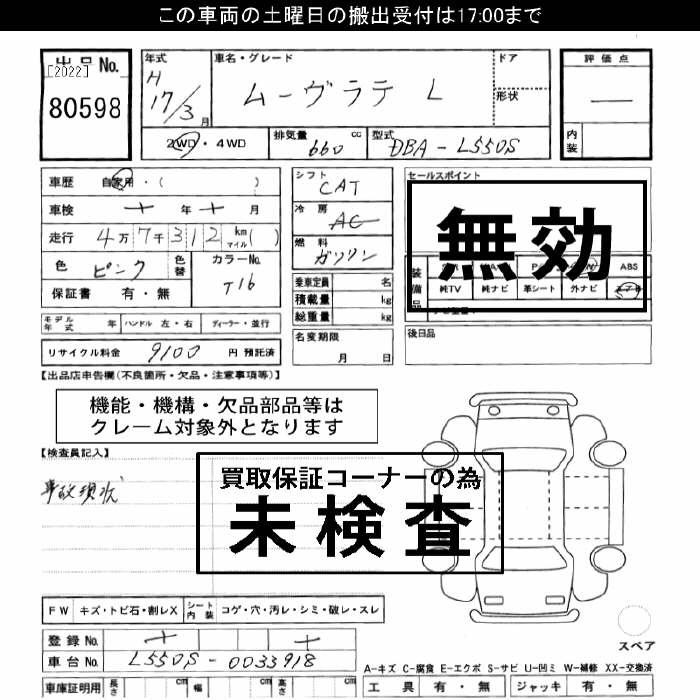 この車両の土曜日の搬出受付は17:00まで
出品No. 年式 車名・グレード ドア 評価点
[2022] H ムーヴラテ L
80598 17/3月 形状 内装
2WD・4WD 排気量 660 cc 型式 DBA-L550S
車歴 自家用・( ) シフト CAT セールスポイント
車検 年 月 冷房 AC 無効
走行 4万7千312 km マイル( ) 燃料 ガソリン
色 ピンク 色替 カラーNo. T16 乗車定員 名 装備品 ABS
保証書 有・無 積載量 kg 純TV 純ナビ 革シート 外ナビ
モデル年式 年 ハンドル 左・右 ディーラー・並行 総重量 kg
リサイクル料金 9100 円 預託済 名変期限 月 日 後日品
【出品店申告欄(不良箇所・欠品・注意事項等)】
機能・機構・欠品部品等は
クレーム対象外となります
【検査員記入】
買取保証コーナーの為
事故現状
未検査
FW キズ・トビ石・割レX シート内装 コゲ・穴・汚レ・シミ・破レ・スレ
登録No. スペア
車台No. L550S-0033918
A-キズ C-腐食 E-エクボ S-サビ U-凹ミ W-補修 XX-交換済
車庫証明用 長さ cm 幅 cm 高さ cm 工具 有・無 ジャッキ 有・無